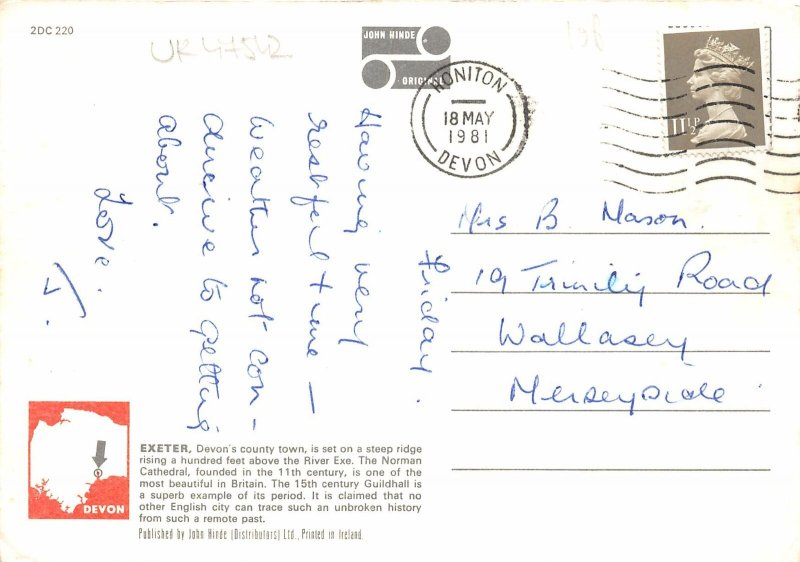 2DC 220
UK 47542
JOHN HINDE
ORIGINAL
HONITON
18 MAY
1981
DEVON
11½P
Friday.
Having very
restful time —
Weather not con-
ducive to getting
about.
Love.
J.
Mrs B. Mason.
19 Trinity Road
Wallasey
Merseyside
DEVON
EXETER, Devon's county town, is set on a steep ridge
rising a hundred feet above the River Exe. The Norman
Cathedral, founded in the 11th century, is one of the
most beautiful in Britain. The 15th century Guildhall is
a superb example of its period. It is claimed that no
other English city can trace such an unbroken history
from such a remote past.
Published by John Hinde (Distributors) Ltd., Printed in Ireland.